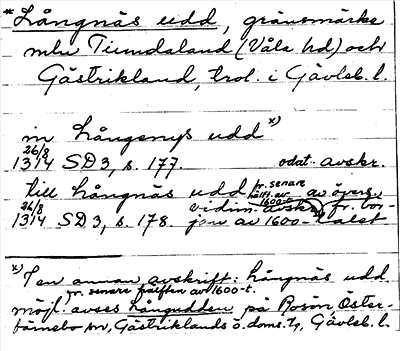 * Långnäs udd, gränsmärke
mln Tiundaland (Våla hd) och
Gästrikland, trol. i Gävleb. l.
in långenys udd x)
26/8
1314 SD 3, s. 177. odat. avskr.
till långnäs udd fr. senare hälft. av 1600-t. av övers.
26/8
1314 SD 3, s. 178. vidim. avskr. fr. bör-
jan av 1600-talet
x) I en annan avskrift: långnäs udd
fr. senare hälften av 1600-t.
möjl. avses Långudden på Rosön, Öster-
färnebo sn, Gästriklands ö. doms. tg, Gävleb. l.